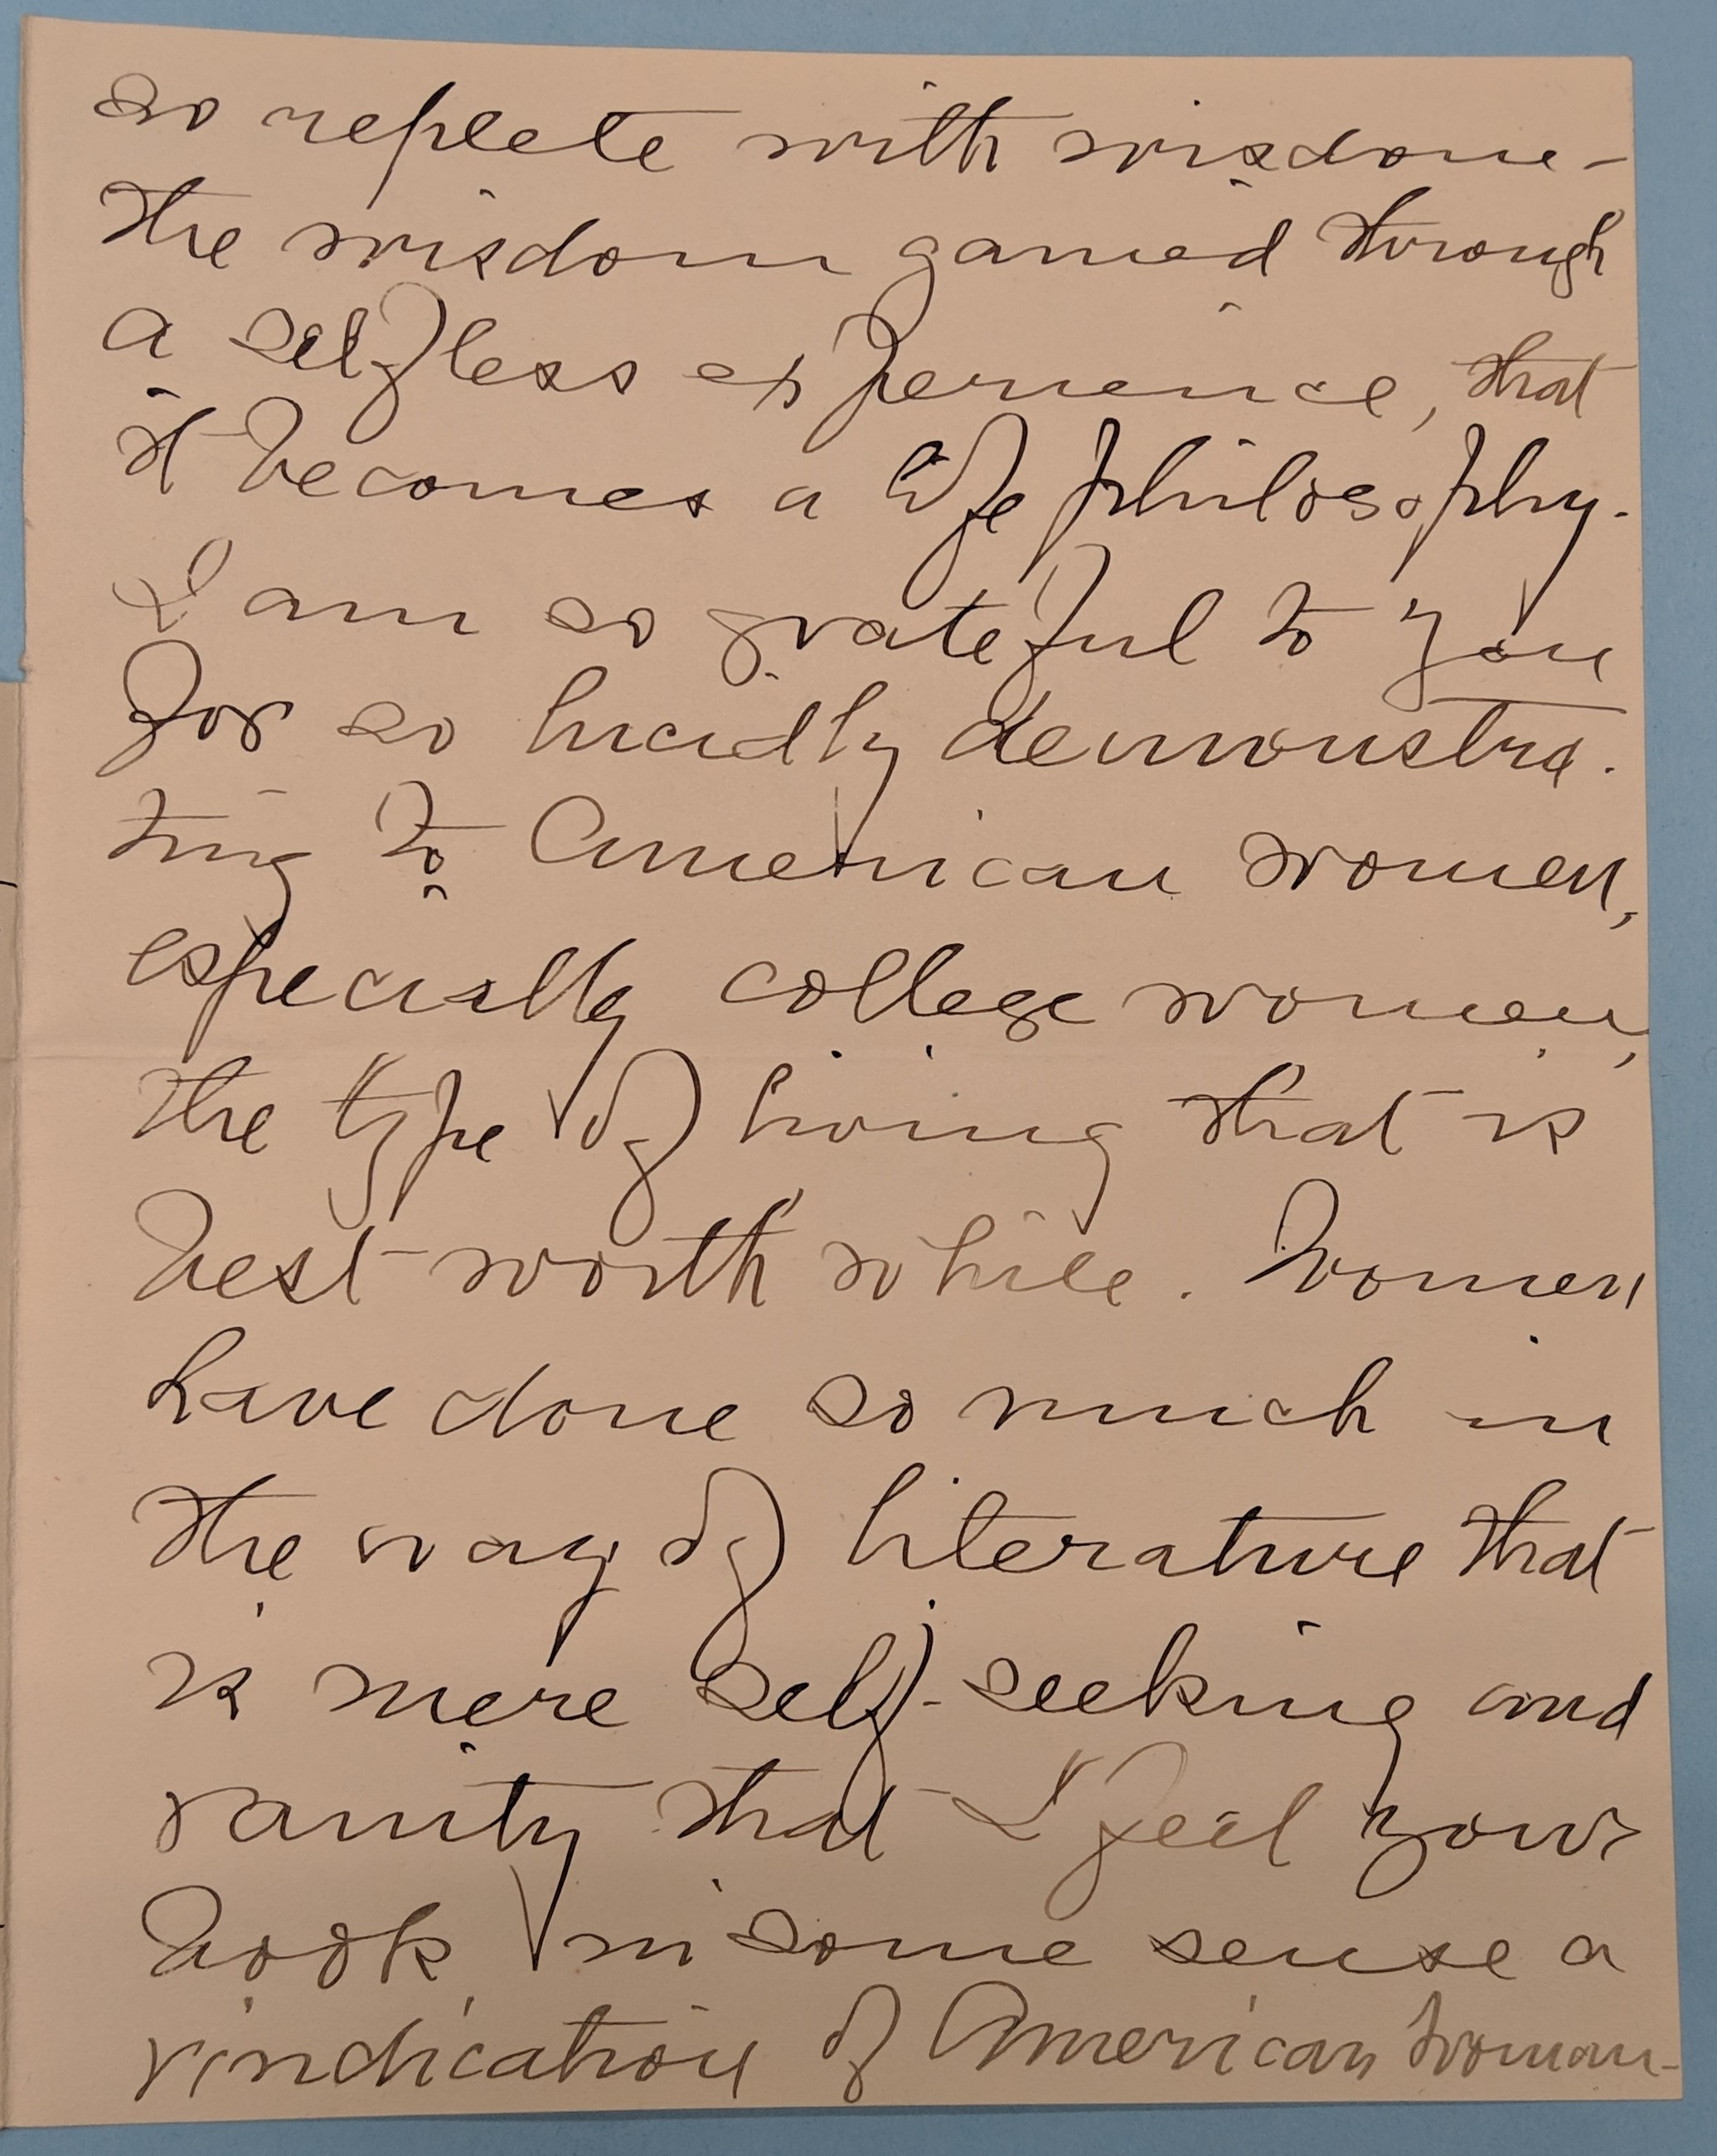 so replete with wisdom -
the wisdom gained through
a selfless experience, that
it becomes a life philosophy.
I am so grateful to you
for so lucidly demonstra-
ting to American women,
especially college women,
the type of living that is
best worth while. Women
have done so much in
the way of literature that
is mere self-seeking and
vanity that I feel your
book in some sense a
vindication of American woman-